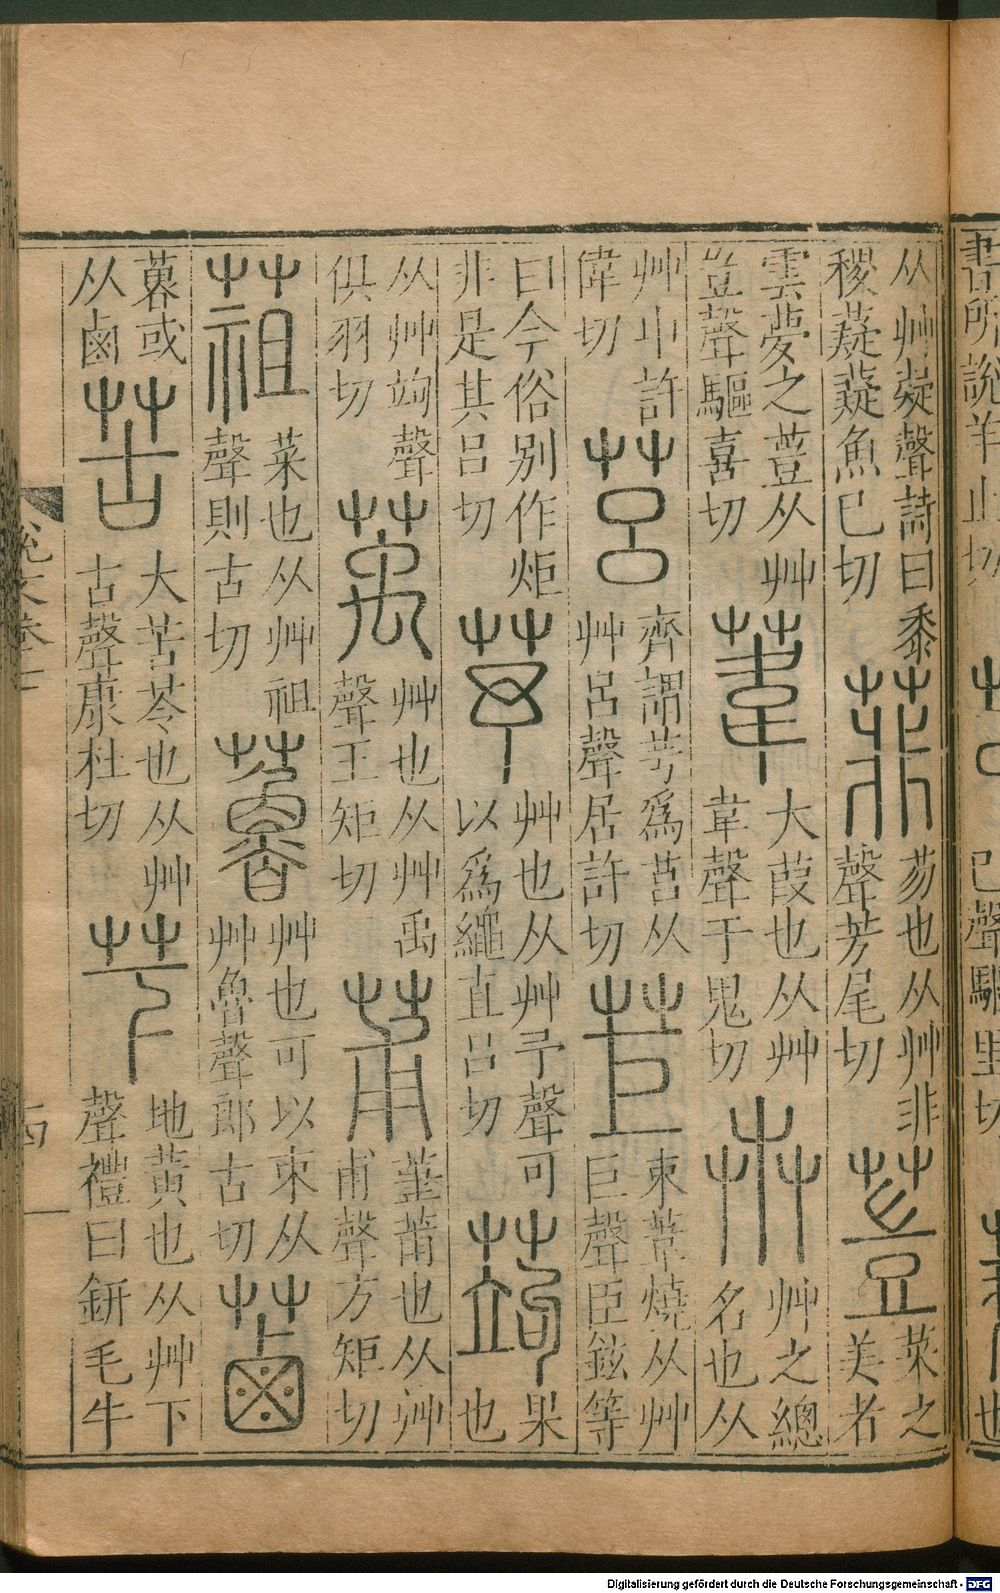 書所說羊止切 己聲驅里切 也
从艸疑聲詩曰黍
稷薿薿魚已切
菲
芴也从艸非
聲芳尾切
䔇
菜之
美者
雲夢之䔇从艸
豈聲驅喜切
葦
大葭也从艸
韋聲于鬼切
卉
艸之總
名也从
艸屮許
偉切
莒
齊謂芌爲莒从
艸呂聲居許切
苣
束葦燒从艸
巨聲臣鉉等
曰今俗别作炬
非是其呂切
芧
艸也从艸予聲可
以爲繩直呂切
蒟
果
也
从艸竘聲
俱羽切
萭
艸也从艸禹
聲王矩切
莆
萐莆也从艸
甫聲方矩切
菜也从艸祖
聲則古切
艸也可以束从
艸魯聲郎古切
蓾
或
从鹵
苦
大苦苓也从艸
古聲康杜切
芐
地黃也从艸下
聲禮曰鈃毛牛
說文卷一
Digitalisierung gefördert durch die Deutsche Forschungsgemeinschaft - DFG